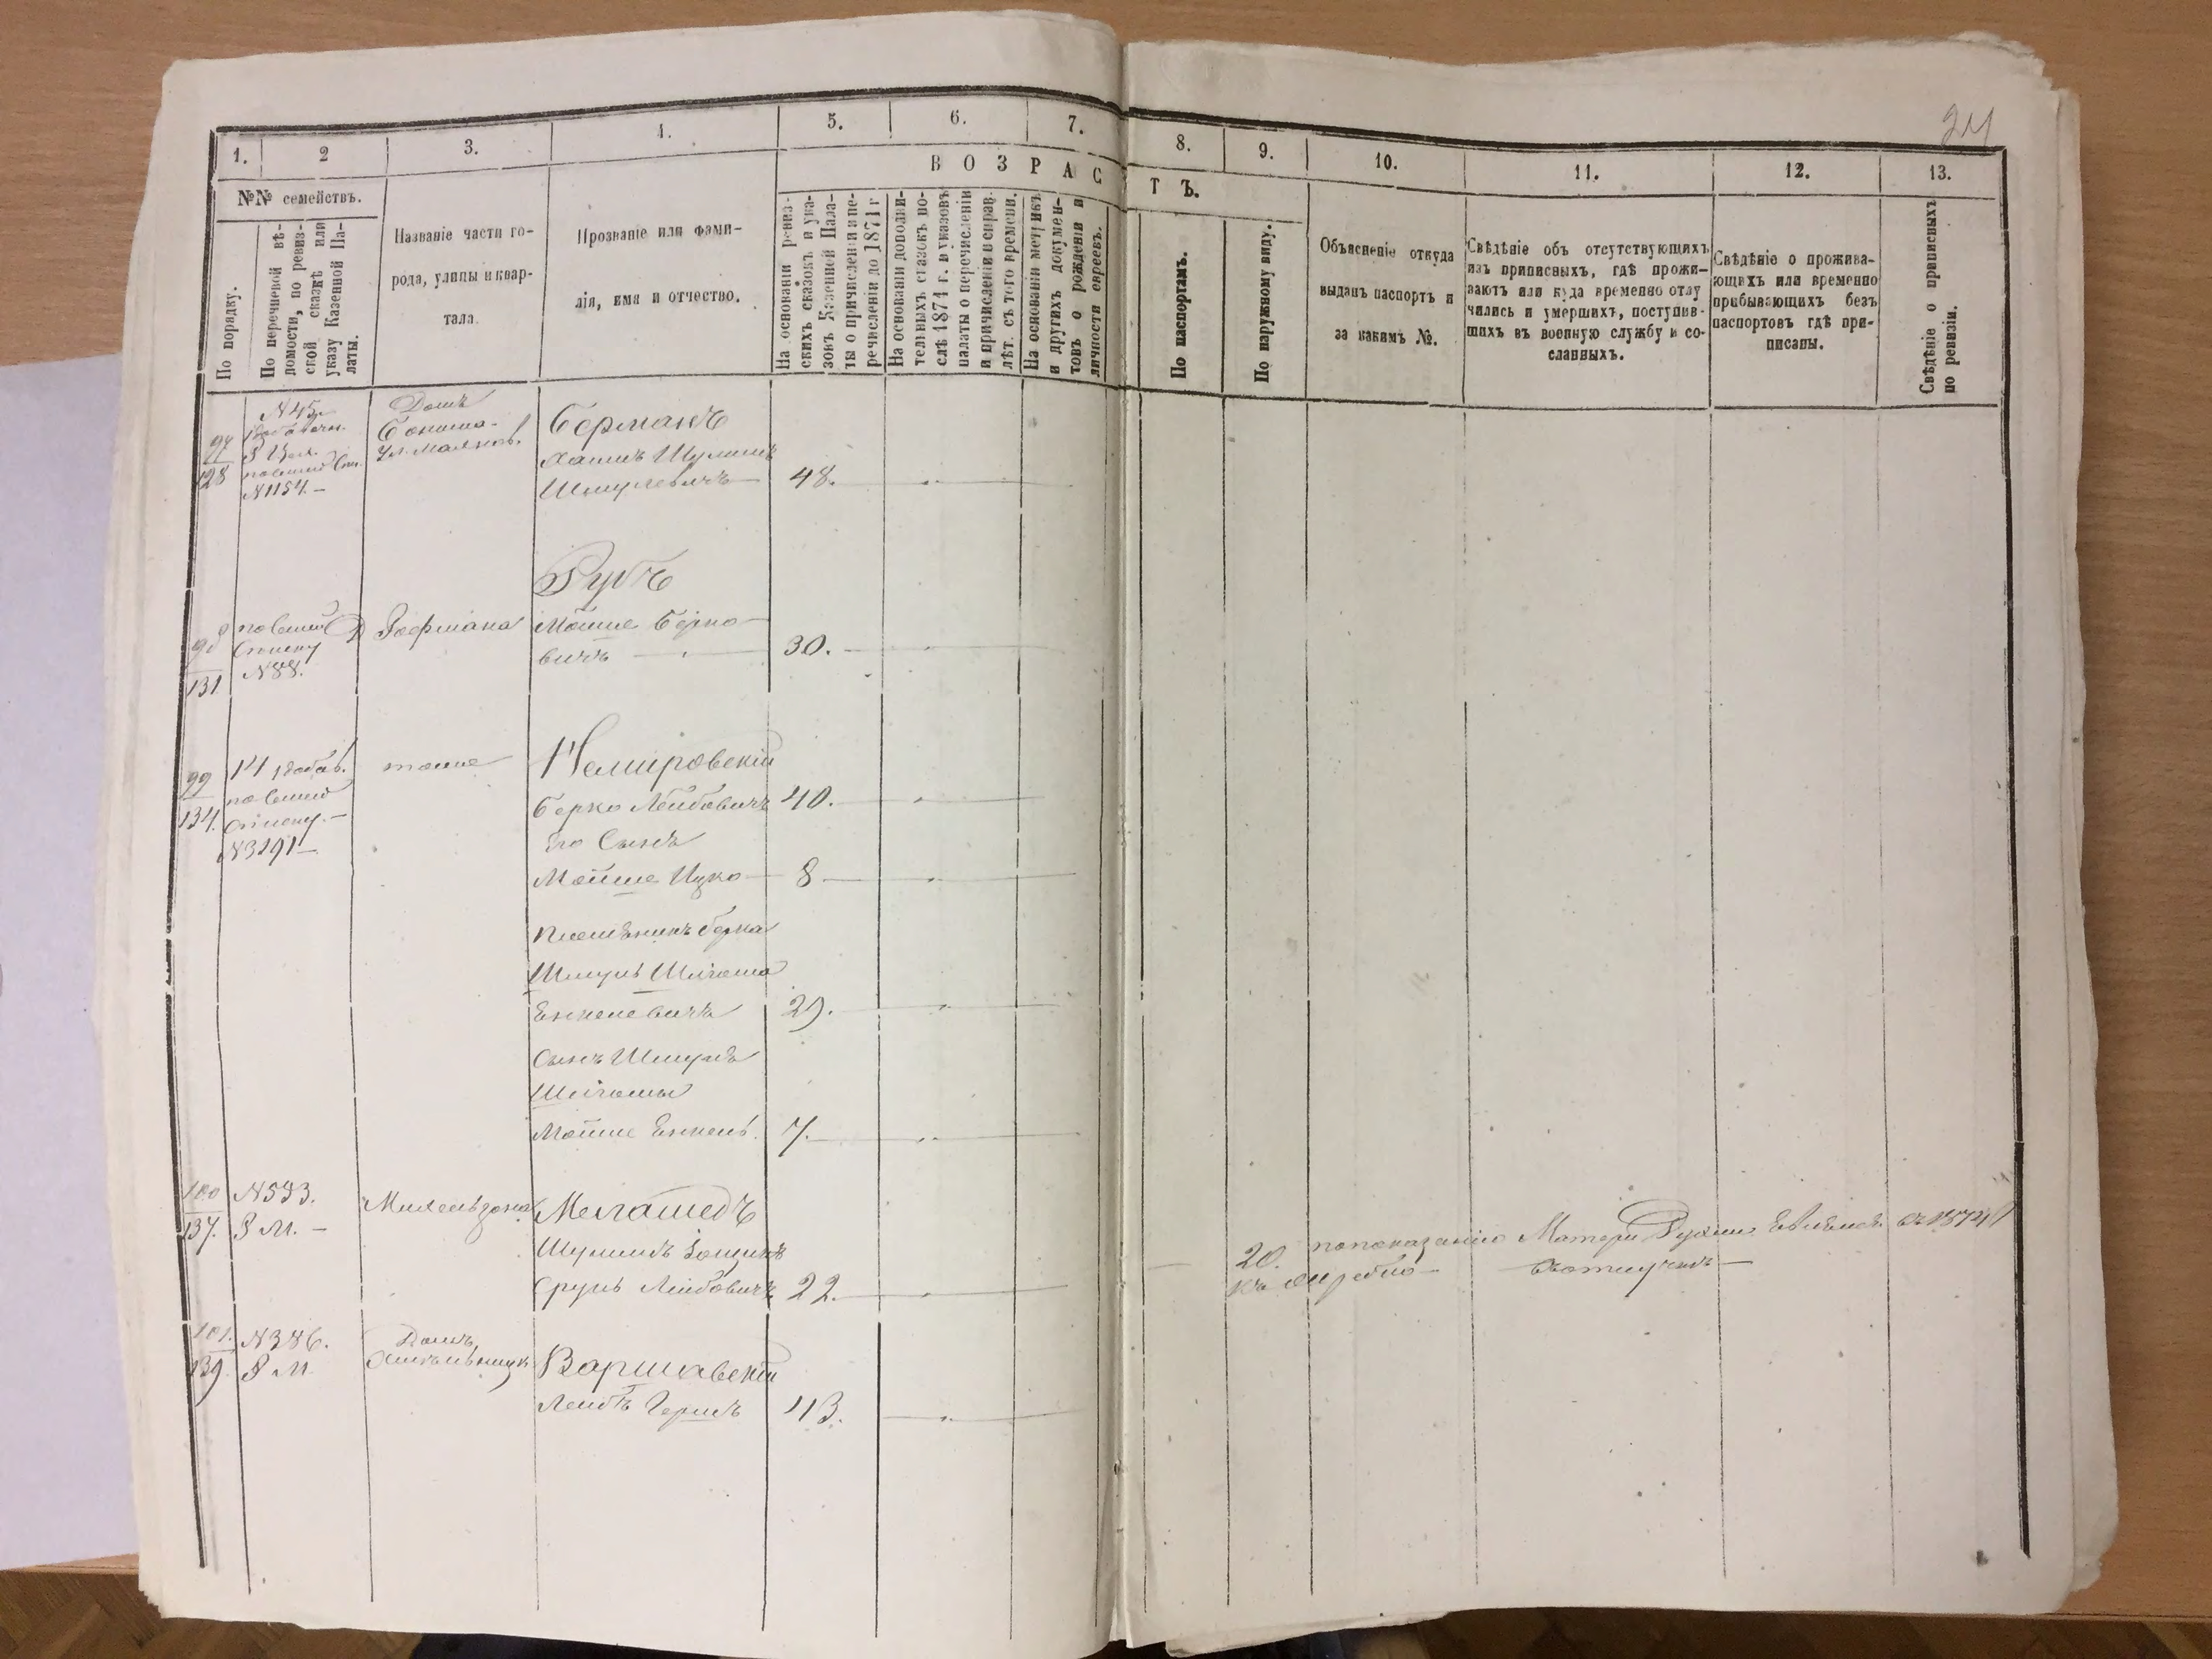 24
1.
2
3.
4.
5.
6.
7.
8.
9.
10.
11.
12.
13.
ВОЗРАСТЪ.
№№ семействъ.
По порядку.
По перечневой вѣ-
домости, по ревиз-
ской сказкѣ или
указу Казенной Па-
латы.
Названіе части го-
рода, улицы и квар-
тала.
Прозваніе или фами-
лія, имя и отчество.
На основаніи ревиз-
скихъ сказокъ и ука-
зовъ Казенной Пала-
ты о причисленіи и пе-
речисленіи до 1874 г
На основаніи дополни-
тельныхъ сказокъ по-
слѣ 1874 г. и указовъ
палаты о перечисленіи
и причисленіи и справ.
лѣт. съ того времени.
На основаніи метрикъ
и другихъ докумен-
товъ о рожденіи и
личности евреевъ.
По паспортамъ.
По наружному виду.
Объясненіе откуда
выданъ паспортъ и
за какимъ №.
Свѣдѣніе объ отсутствующихъ
изъ приписныхъ, гдѣ прожи-
ваютъ или куда временно отлу
чились и умершихъ, поступив-
шихъ въ военную службу и со-
сланныхъ.
Свѣдѣніе о прожива-
ющихъ или временно
прибывающихъ безъ
паспортовъ гдѣ при-
писаны.
Свѣдѣніе о приписныхъ
по ревизіи.
97
128
№1154.
Домъ
Берманъ
Хаимъ Шулимъ
Шмулевичъ
48.
98
131
№88.
Гофмана
Рубъ
Мошие Берко-
вичъ
30.
99
134.
14 добав.
№3291
тоже
Немировскій
Берко Лейбовичъ
40.
Его Сынъ
Мошие Ицко
8
племянникъ Берка
Шмуль Шліома
Енкелевичъ
29.
Сынъ Шмуля
Шліомы
Мошие Енкель.
7.
100
137.
№593.
Р М.
Михельзона
Меламедъ
Шулимъ
Сруль Лейбовичъ
22.
20.
по показанію Матери
101.
139.
№386.
Р М
Домъ
Варшавскій
Лейбъ Гершъ
43.